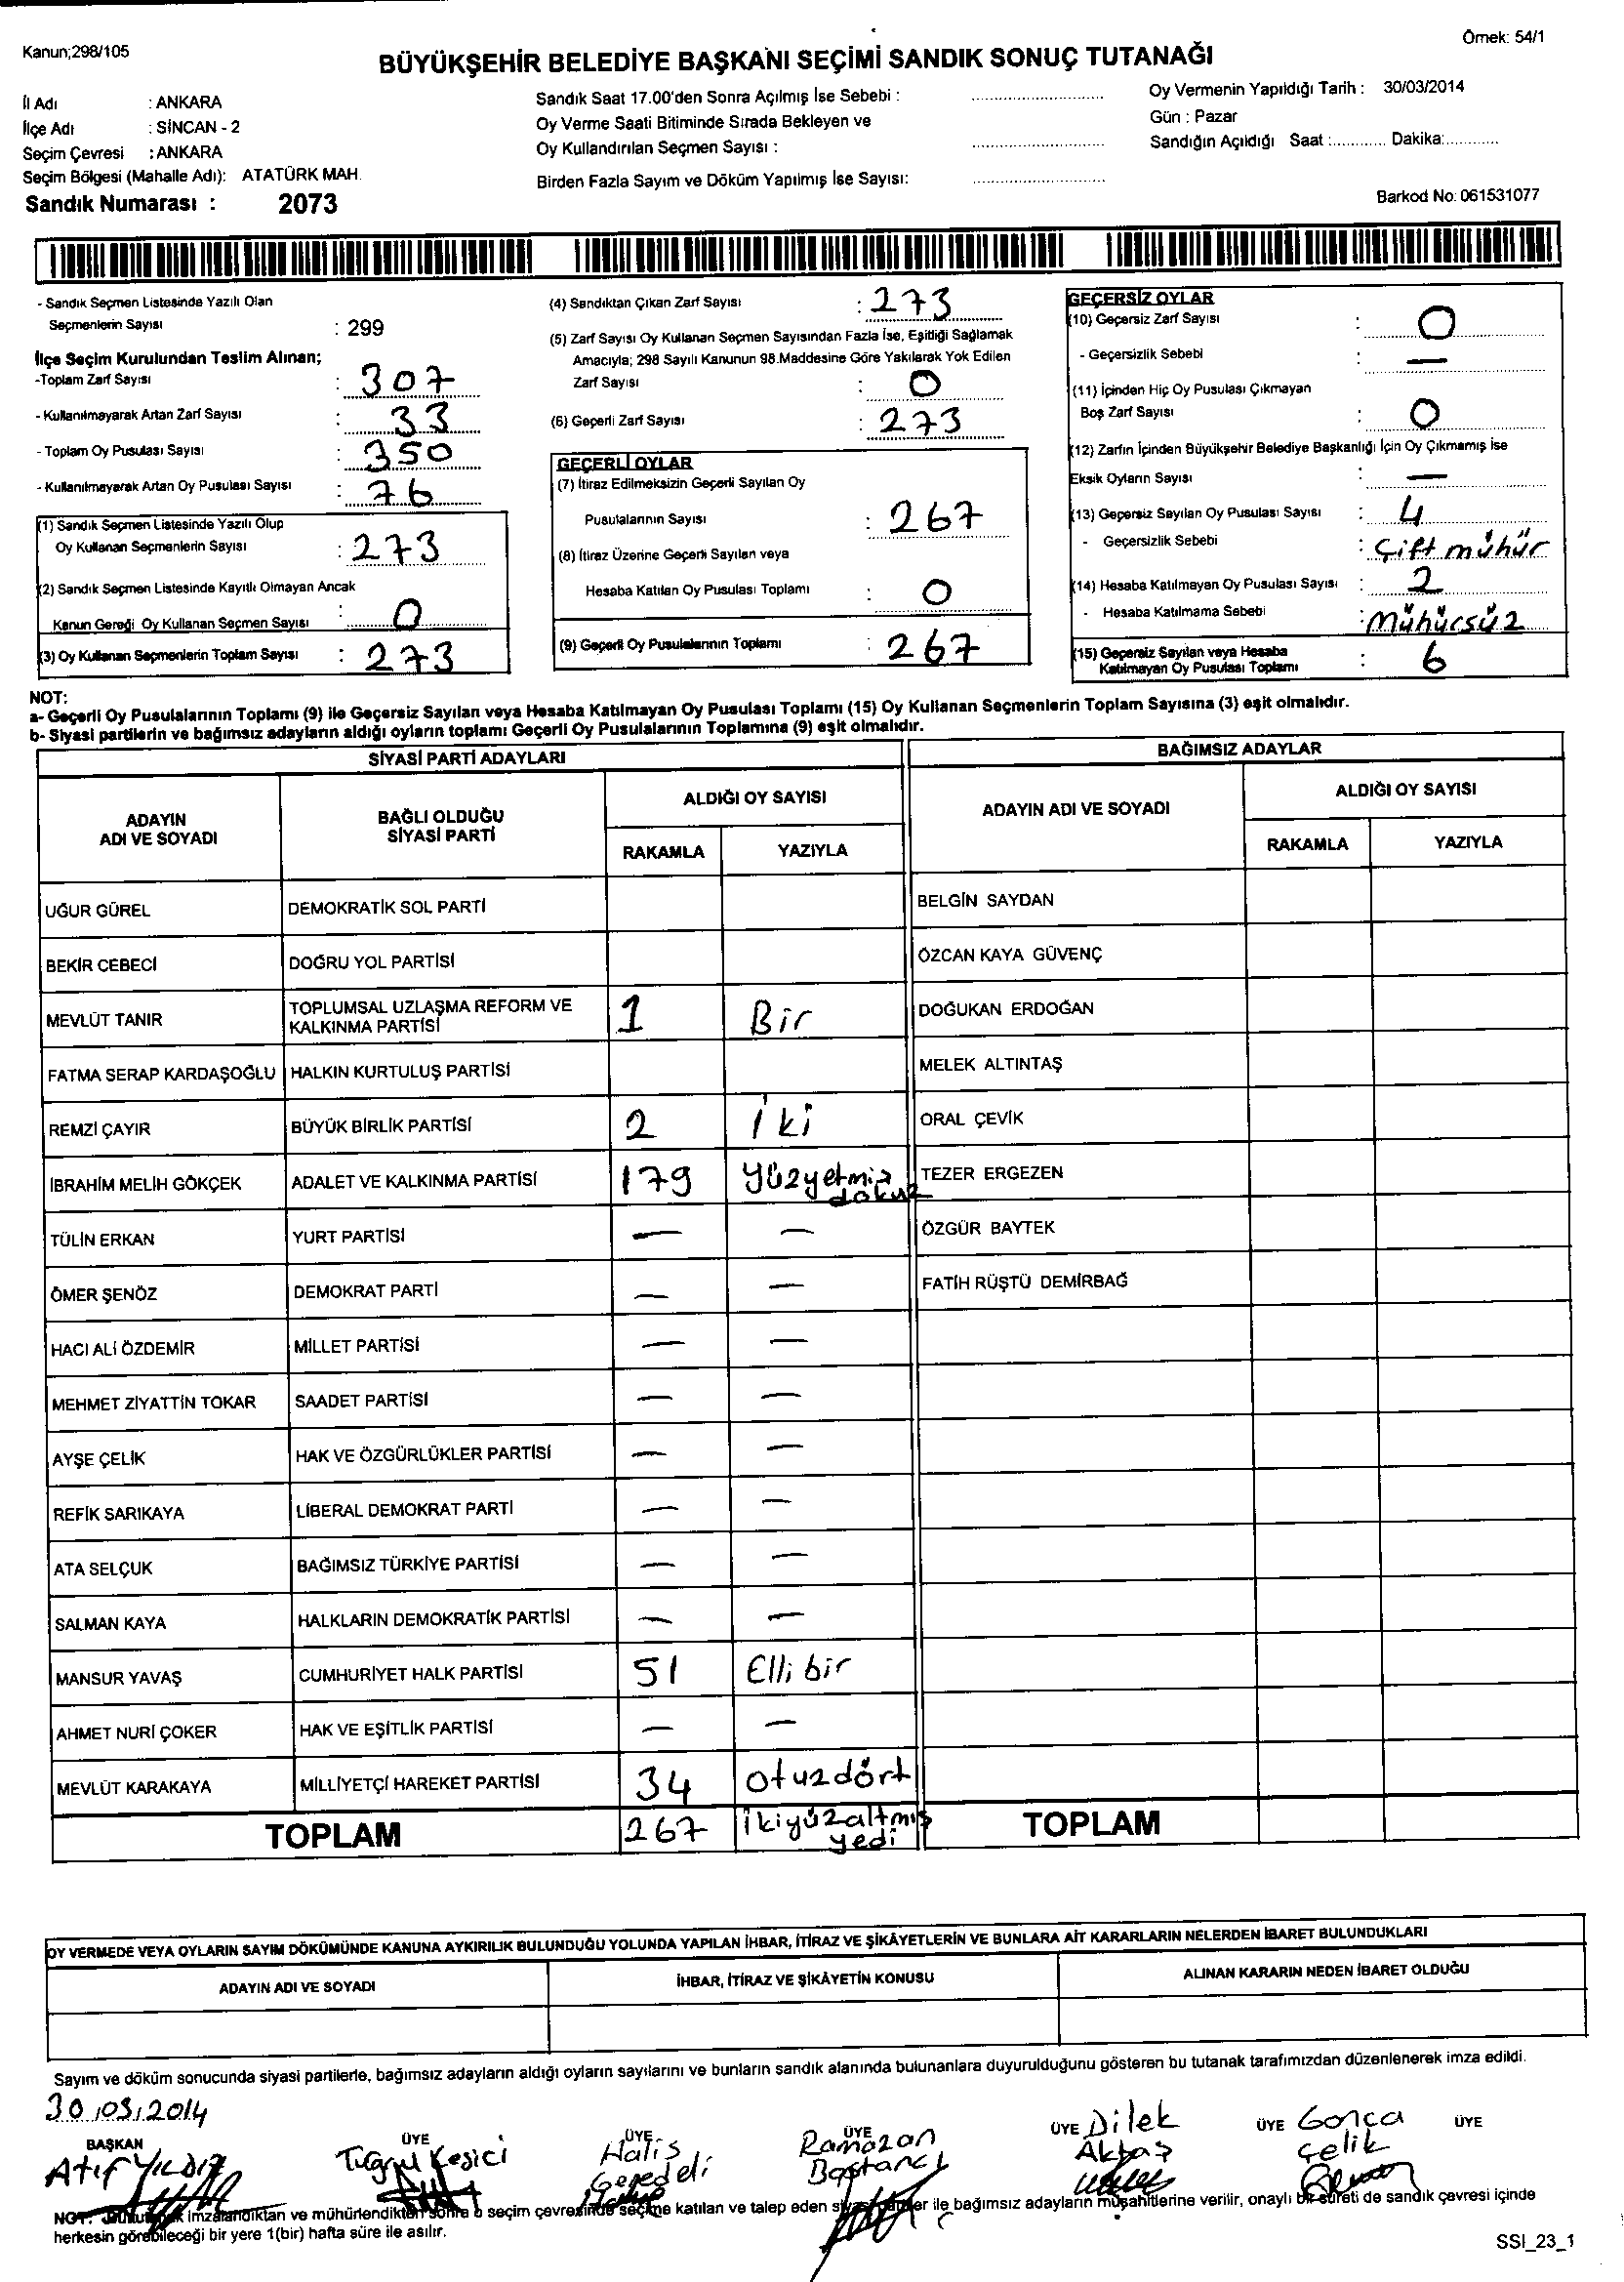 Kanun;298/105
Örnek: 54/1
BÜYÜKŞEHİR BELEDİYE BAŞKANI SEÇİMİ SANDIK SONUÇ TUTANAĞI
İl Adı : ANKARA
İlçe Adı : SİNCAN - 2
Seçim Çevresi : ANKARA
Seçim Bölgesi (Mahalle Adı): ATATÜRK MAH.
Sandık Numarası : 2073
Sandık Saat 17.00'den Sonra Açılmış İse Sebebi :
Oy Verme Saati Bitiminde Sırada Bekleyen ve
Oy Kullandırılan Seçmen Sayısı :
Birden Fazla Sayım ve Döküm Yapılmış İse Sayısı:
Oy Vermenin Yapıldığı Tarih : 30/03/2014
Gün : Pazar
Sandığın Açıldığı Saat :............. Dakika:............
Barkod No: 061531077
- Sandık Seçmen Listesinde Yazılı Olan
Seçmenlerin Sayısı : 299
İlçe Seçim Kurulundan Teslim Alınan;
-Toplam Zarf Sayısı : 307
- Kullanılmayarak Artan Zarf Sayısı : 33
- Toplam Oy Pusulası Sayısı : 350
- Kullanılmayarak Artan Oy Pusulası Sayısı : 76
(1) Sandık Seçmen Listesinde Yazılı Olup
Oy Kullanan Seçmenlerin Sayısı : 273
(2) Sandık Seçmen Listesinde Kayıtlı Olmayan Ancak
Kanun Gereği Oy Kullanan Seçmen Sayısı : 0
(3) Oy Kullanan Seçmenlerin Toplam Sayısı : 273
(4) Sandıktan Çıkan Zarf Sayısı : 273
(5) Zarf Sayısı Oy Kullanan Seçmen Sayısından Fazla İse, Eşitliği Sağlamak
Amacıyla; 298 Sayılı Kanunun 98.Maddesine Göre Yakılarak Yok Edilen
Zarf Sayısı : 0
(6) Geçerli Zarf Sayısı : 273
GEÇERLİ OYLAR
(7) İtiraz Edilmeksizin Geçerli Sayılan Oy
Pusulalarının Sayısı : 267
(8) İtiraz Üzerine Geçerli Sayılan veya
Hesaba Katılan Oy Pusulası Toplamı : 0
(9) Geçerli Oy Pusulalarının Toplamı : 267
GEÇERSİZ OYLAR
(10) Geçersiz Zarf Sayısı : 0
- Geçersizlik Sebebi : —
(11) İçinden Hiç Oy Pusulası Çıkmayan
Boş Zarf Sayısı : 0
(12) Zarfın İçinden Büyükşehir Belediye Başkanlığı İçin Oy Çıkmamış İse
Eksik Oyların Sayısı : —
(13) Geçersiz Sayılan Oy Pusulası Sayısı : 4
- Geçersizlik Sebebi : Çift mühür
(14) Hesaba Katılmayan Oy Pusulası Sayısı : 2
- Hesaba Katılmama Sebebi : Mühürsüz
(15) Geçersiz Sayılan veya Hesaba
Katılmayan Oy Pusulası Toplamı : 6
NOT:
a- Geçerli Oy Pusulalarının Toplamı (9) ile Geçersiz Sayılan veya Hesaba Katılmayan Oy Pusulası Toplamı (15) Oy Kullanan Seçmenlerin Toplam Sayısına (3) eşit olmalıdır.
b- Siyasi partilerin ve bağımsız adayların aldığı oyların toplamı Geçerli Oy Pusulalarının Toplamına (9) eşit olmalıdır.
SİYASİ PARTİ ADAYLARI
ADAYIN
ADI VE SOYADI
BAĞLI OLDUĞU
SİYASİ PARTİ
ALDIĞI OY SAYISI
RAKAMLA YAZIYLA
UĞUR GÜREL DEMOKRATİK SOL PARTİ
BEKİR CEBECİ DOĞRU YOL PARTİSİ
MEVLÜT TANIR TOPLUMSAL UZLAŞMA REFORM VE
KALKINMA PARTİSİ 1 Bir
FATMA SERAP KARDAŞOĞLU HALKIN KURTULUŞ PARTİSİ
REMZİ ÇAYIR BÜYÜK BİRLİK PARTİSİ 2 İki
İBRAHİM MELİH GÖKÇEK ADALET VE KALKINMA PARTİSİ 179 yüzyetmiş
dokuz
TÜLİN ERKAN YURT PARTİSİ — —
ÖMER ŞENÖZ DEMOKRAT PARTİ — —
HACI ALİ ÖZDEMİR MİLLET PARTİSİ — —
MEHMET ZİYATTİN TOKAR SAADET PARTİSİ — —
AYŞE ÇELİK HAK VE ÖZGÜRLÜKLER PARTİSİ — —
REFİK SARIKAYA LİBERAL DEMOKRAT PARTİ — —
ATA SELÇUK BAĞIMSIZ TÜRKİYE PARTİSİ — —
SALMAN KAYA HALKLARIN DEMOKRATİK PARTİSİ — —
MANSUR YAVAŞ CUMHURİYET HALK PARTİSİ 51 Elli bir
AHMET NURİ ÇOKER HAK VE EŞİTLİK PARTİSİ — —
MEVLÜT KARAKAYA MİLLİYETÇİ HAREKET PARTİSİ 34 otuzdört
TOPLAM 267 ikiyüzaltmış
yedi
BAĞIMSIZ ADAYLAR
ADAYIN ADI VE SOYADI
ALDIĞI OY SAYISI
RAKAMLA YAZIYLA
BELGİN SAYDAN
ÖZCAN KAYA GÜVENÇ
DOĞUKAN ERDOĞAN
MELEK ALTINTAŞ
ORAL ÇEVİK
TEZER ERGEZEN
ÖZGÜR BAYTEK
FATİH RÜŞTÜ DEMİRBAĞ
TOPLAM
OY VERMEDE VEYA OYLARIN SAYIM DÖKÜMÜNDE KANUNA AYKIRILIK BULUNDUĞU YOLUNDA YAPILAN İHBAR, İTİRAZ VE ŞİKÂYETLERİN VE BUNLARA AİT KARARLARIN NELERDEN İBARET BULUNDUKLARI
ADAYIN ADI VE SOYADI İHBAR, İTİRAZ VE ŞİKÂYETİN KONUSU ALINAN KARARIN NEDEN İBARET OLDUĞU
Sayım ve döküm sonucunda siyasi partilerle, bağımsız adayların aldığı oyların sayılarını ve bunların sandık alanında bulunanlara duyurulduğunu gösteren bu tutanak tarafımızdan düzenlenerek imza edildi.
30/03/2014
BAŞKAN ÜYE ÜYE ÜYE ÜYE ÜYE ÜYE
Atıf Yıldız
Tuğrul Kesici
Halis
Geredeli
Ramazan
Bostancı
Dilek
Aktaş
Gonca
Çelik
NOT: imzalandıktan ve mühürlendikten sonra o seçim çevresinde seçime katılan ve talep eden siyasi partiler ile bağımsız adayların müşahitlerine verilir, onaylı bir sureti de sandık çevresi içinde
herkesin görebileceği bir yere 1(bir) hafta süre ile asılır.
SSI_23_1